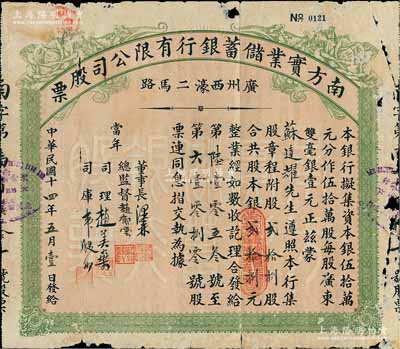 上海陽明拍賣
No 0121
南方實業儲蓄銀行有限公司股票
廣州西濠二馬路
本銀行擬集資本銀伍拾萬
元分作伍拾萬股每股廣東
雙毫銀壹元正茲蒙
蘇道耀先生遵照本行集
股章程附股貳拾捌股
合共股本銀貳拾捌元
整業經如數收訖理合發給
第陸壹零伍叁號至
第六壹零捌零號股
票連同息招交執為據
當年
董事長
總監督
司理
司庫
中華民國十四年五月壹日發給
號股票